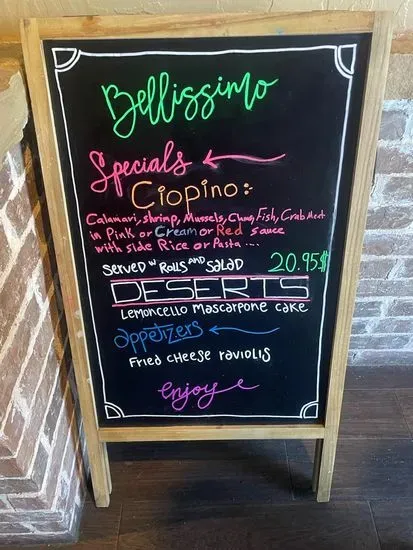 Bellissimo
Specials
Ciopino:
Calamari, shrimp, Mussels, Clams, Fish, Crab Meat
in Pink or Cream or Red sauce
with side Rice or Pasta ....
Served w Rolls and Salad 20.95$
DESERTS
Lemoncello Mascarpone Cake
appetizers
Fried Cheese Raviolis
enjoy